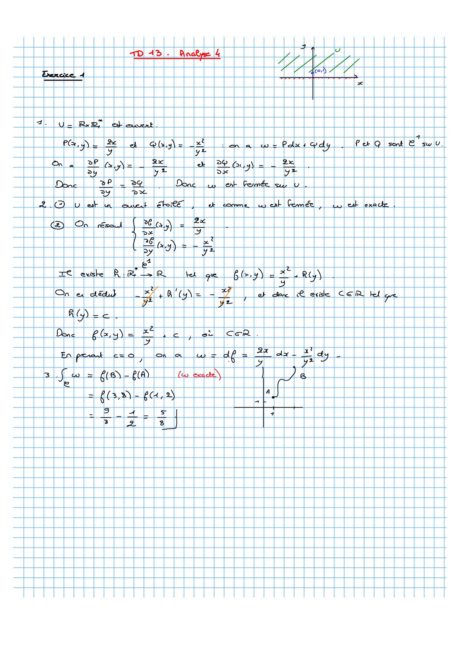 TD 13. Analyse 4
Exercice 1
y
U
(0,1)
x
1. U = R×R₊* est ouvert.
P(x,y) = 2x/y et Q(x,y) = -x²/y² : on a w = Pdx + Qdy. P et Q sont C¹ sur U.
On a ∂P/∂y (x,y) = - 2x/y² et ∂Q/∂x (x,y) = - 2x/y²
Donc ∂P/∂y = ∂Q/∂x Donc w est fermée sur U.
2. ① U est un ouvert étoilé, et comme w est fermée, w est exacte.
② On résout { ∂f/∂x (x,y) = 2x/y .
∂f/∂y (x,y) = - x²/y²
Il existe R : R₊* →^{C¹} R tel que f(x,y) = x²/y + R(y)
On en déduit - x²/y² + R'(y) = - x²/y² , et donc il existe C∈R tel que
R(y) = c.
Donc f(x,y) = x²/y + c , où C∈R.
En prenant c=0, on a w = df = 2x/y dx - x²/y² dy.
3. ∫_C w = f(B) - f(A) (w exacte)
= f(3,8) - f(1,2)
= 9/8 - 1/2 = 5/8
A
B
1